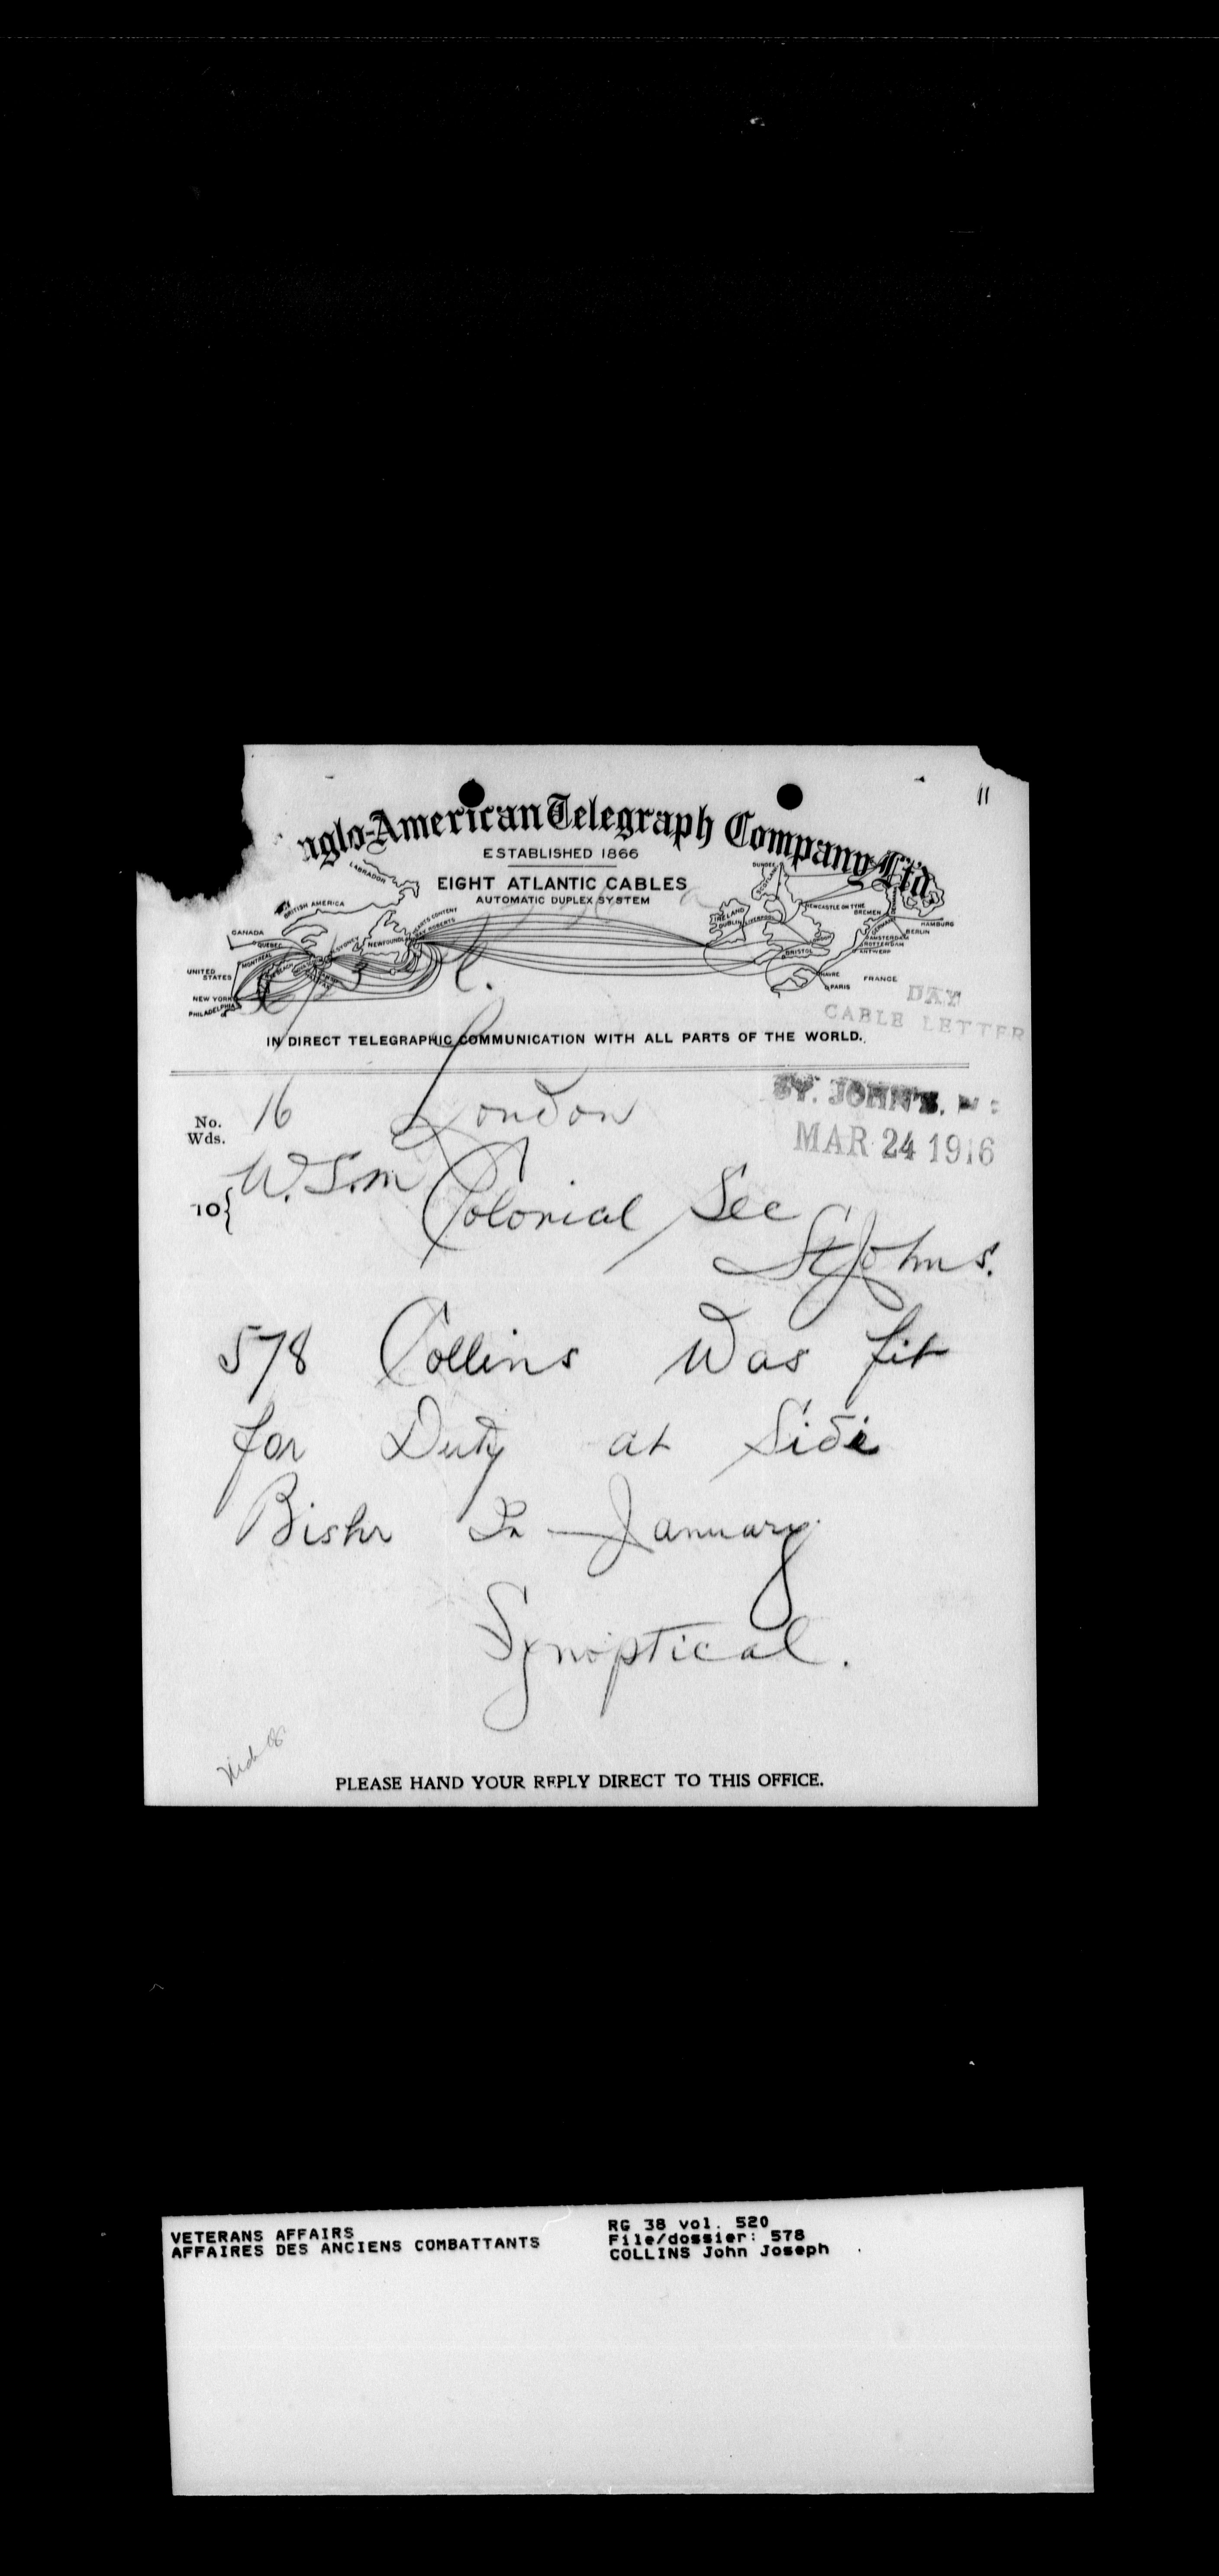 11
nglo-American Telegraph Company Ltd.
ESTABLISHED 1866
EIGHT ATLANTIC CABLES
AUTOMATIC DUPLEX SYSTEM
LABRADOR
BRITISH AMERICA
CANADA
QUEBEC
MONTREAL
UNITED STATES
NEW YORK
PHILADELPHIA
SYDNEY
NEWFOUNDLAND
HEARTS CONTENT
BAY ROBERTS
DUNDEE
SCOTLAND
IRELAND
DUBLIN
LIVERPOOL
NEWCASTLE ON TYNE
BREMEN
HAMBURG
BERLIN
GERMANY
AMSTERDAM
ROTTERDAM
ANTWERP
LONDON
BRISTOL
HAVRE
PARIS
FRANCE
DAY
CABLE LETTER
IN DIRECT TELEGRAPHIC COMMUNICATION WITH ALL PARTS OF THE WORLD.
ST. JOHN'S. N
MAR 24 1916
No. Wds. 16 London
TO W.S.M Colonial Sec
St Johns.
578 Collins Was fit
for Duty at Sidi
Bishr In January
Synoptical.
PLEASE HAND YOUR REPLY DIRECT TO THIS OFFICE.
VETERANS AFFAIRS
AFFAIRES DES ANCIENS COMBATTANTS
RG 38 vol. 520
File/dossier: 578
COLLINS John Joseph